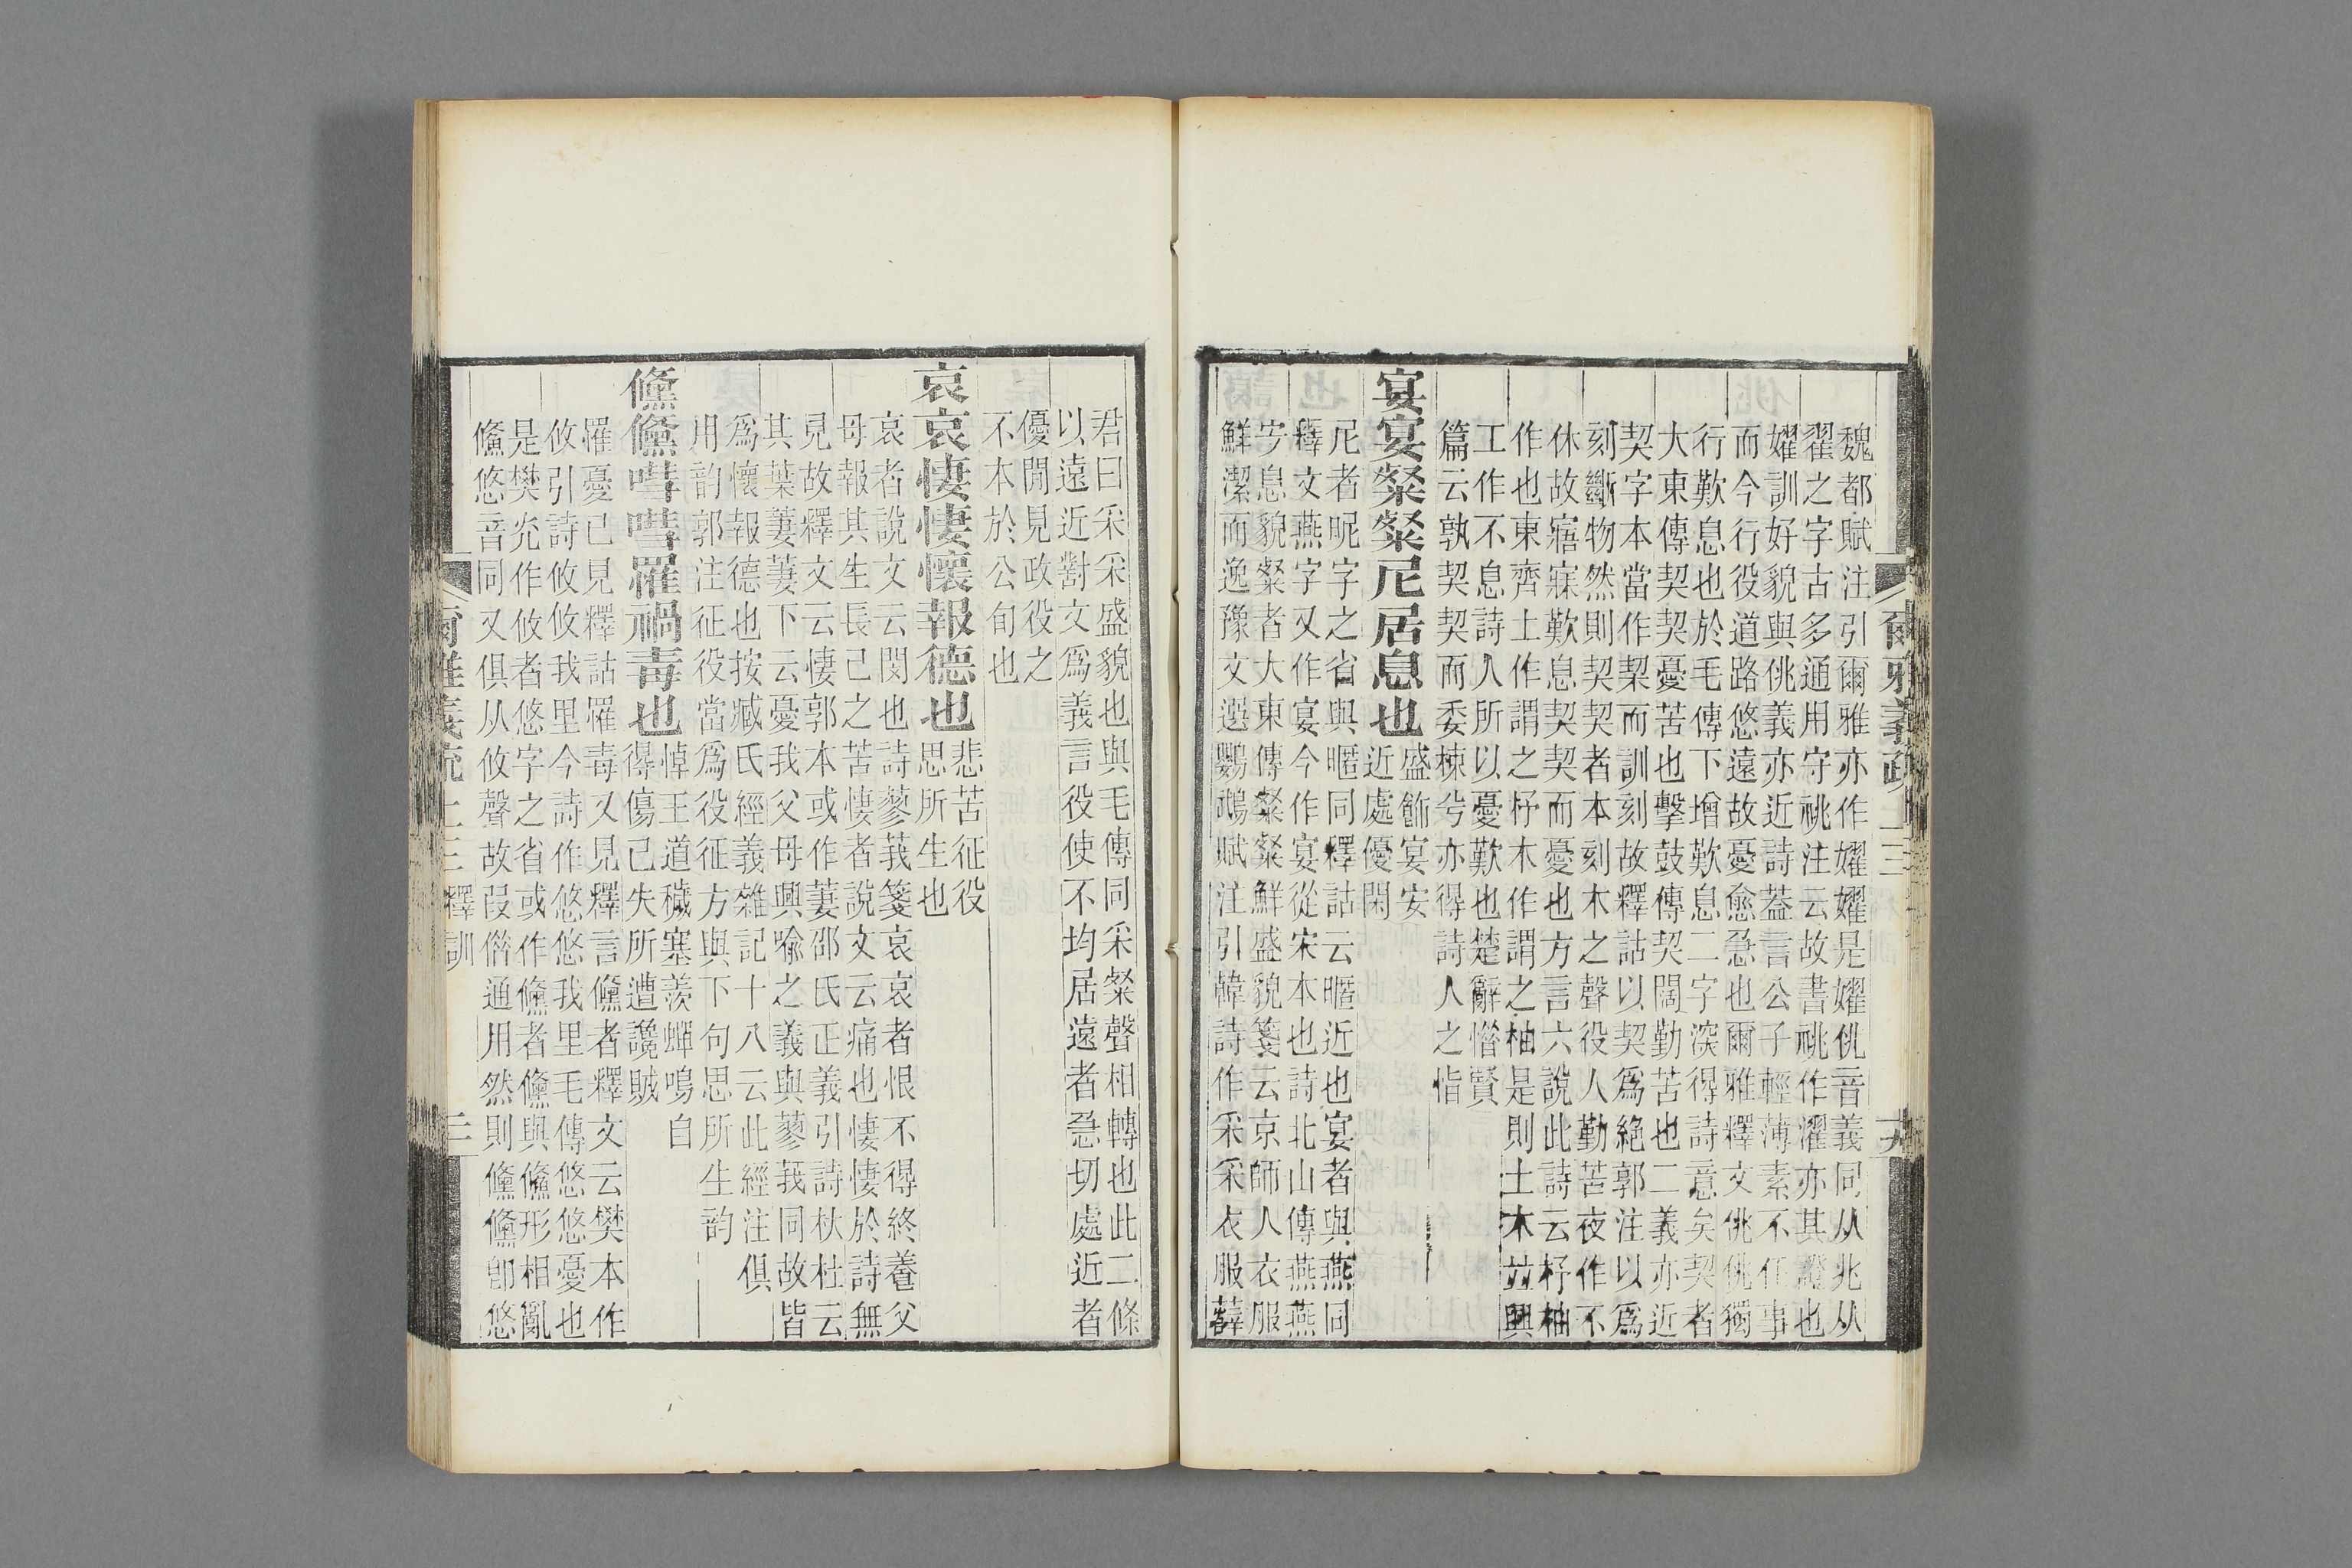 魏都賦注引爾雅亦作嬥嬥是嬥佻音義同从兆从
翟之字古多通用守祧注云故書祧作濯亦其證也
嬥訓好貌與佻義亦近詩葢言公子輕薄素不任事
而今行役道路悠遠故憂愈急也爾雅釋文佻佻獨
行歎息也於毛傳下增歎息二字深得詩意矣契者
大東傳契契憂苦也擊鼓傳契闊勤苦也二義亦近
契字本當作栔而訓刻故釋詁以契爲絕郭注以爲
刻斷物然則契契者本刻木之聲役人勤苦夜作不
休故寤寐歎息契契而憂也方言六說此詩云杼柚
作也東齊土作謂之杼木作謂之柚是則土木竝興
工作不息詩人所以憂歎也楚辭惜賢
篇云孰契契而委棟兮亦得詩人之恉
宴宴粲粲尼居息也
盛飾宴安
近處優閑
尼者昵字之省與暱同釋詁云暱近也宴者與燕同
釋文燕字又作宴今作宴從宋本也詩北山傳燕燕
安息貌粲者大東傳粲粲鮮盛貌箋云京師人衣服
鮮潔而逸豫文選鸚鵡賦注引韓詩作采采衣服薛
爾雅義疏上三
君曰采采盛貌也與毛傳同采粲聲相轉也此二條
以遠近對文爲義言役使不均居遠者急切處近者
優閒見政役之
不本於公旬也
哀哀悽悽懷報德也
悲苦征役
思所生也
哀者說文云閔也詩蓼莪箋哀哀者恨不得終養父
母報其生長己之苦悽者說文云痛也悽悽於詩無
見故釋文云悽郭本或作萋邵氏正義引詩杕杜云
其葉萋萋下云憂我父母興喩之義與蓼莪同故皆
爲懷報德也按臧氏經義雜記十八云此經注俱
用韵郭注征役當爲役征方與下句思所生韵
儵儵嘒嘒罹禍毒也
悼王道穢塞羨蟬鳴自
得傷己失所遭讒賊
罹憂已見釋詁罹毒又見釋言儵者釋文云樊本作
攸引詩攸攸我里今詩作悠悠我里毛傳悠悠憂也
是樊光作攸者悠字之省或作儵者儵與儵形相亂
儵悠音同又俱从攸聲故叚偕通用然則儵儵卽悠
爾雅義疏上三 釋訓